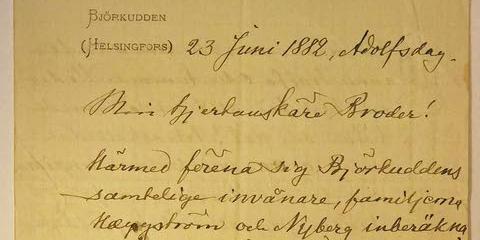 BJÖRKUDDEN
(HELSINGFORS) 23 Juni 1882, Adolfsdag.
Min hjertanskäre Broder!
Härmed förena sig Björkuddens
samtelige invånare, familjerna
Häggström och Nyberg inberäkna